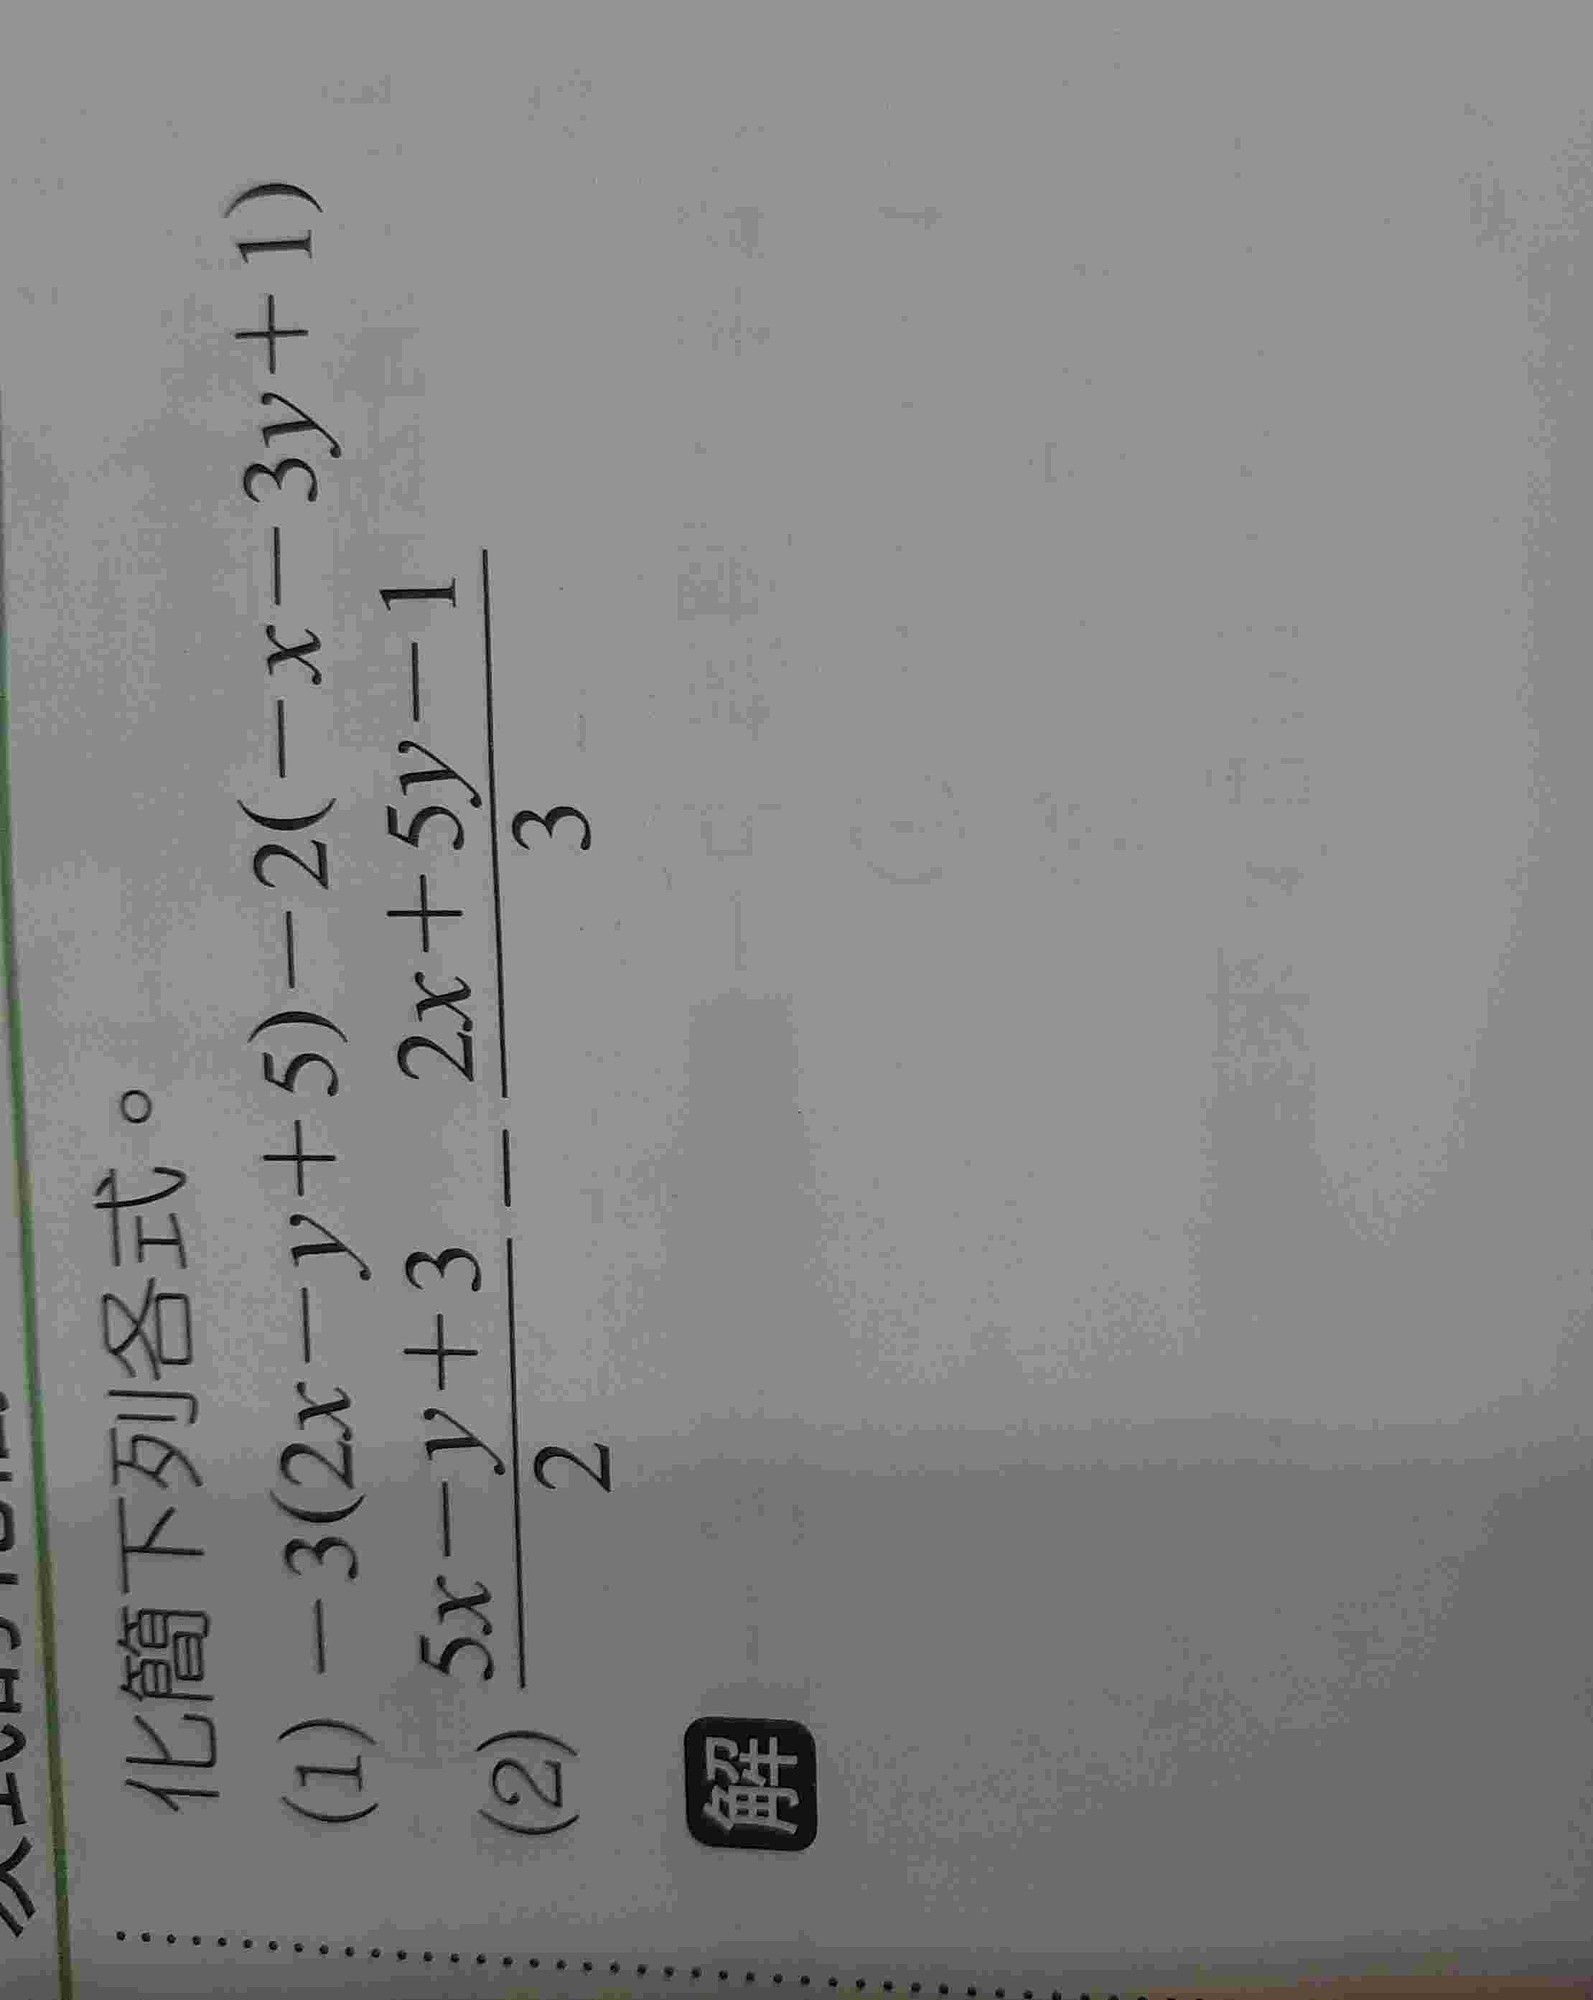 化簡下列各式。
(1) －3(2x－y＋5)－2(－x－3y＋1)
(2) \frac{5x－y＋3}{2}－\frac{2x＋5y－1}{3}
解